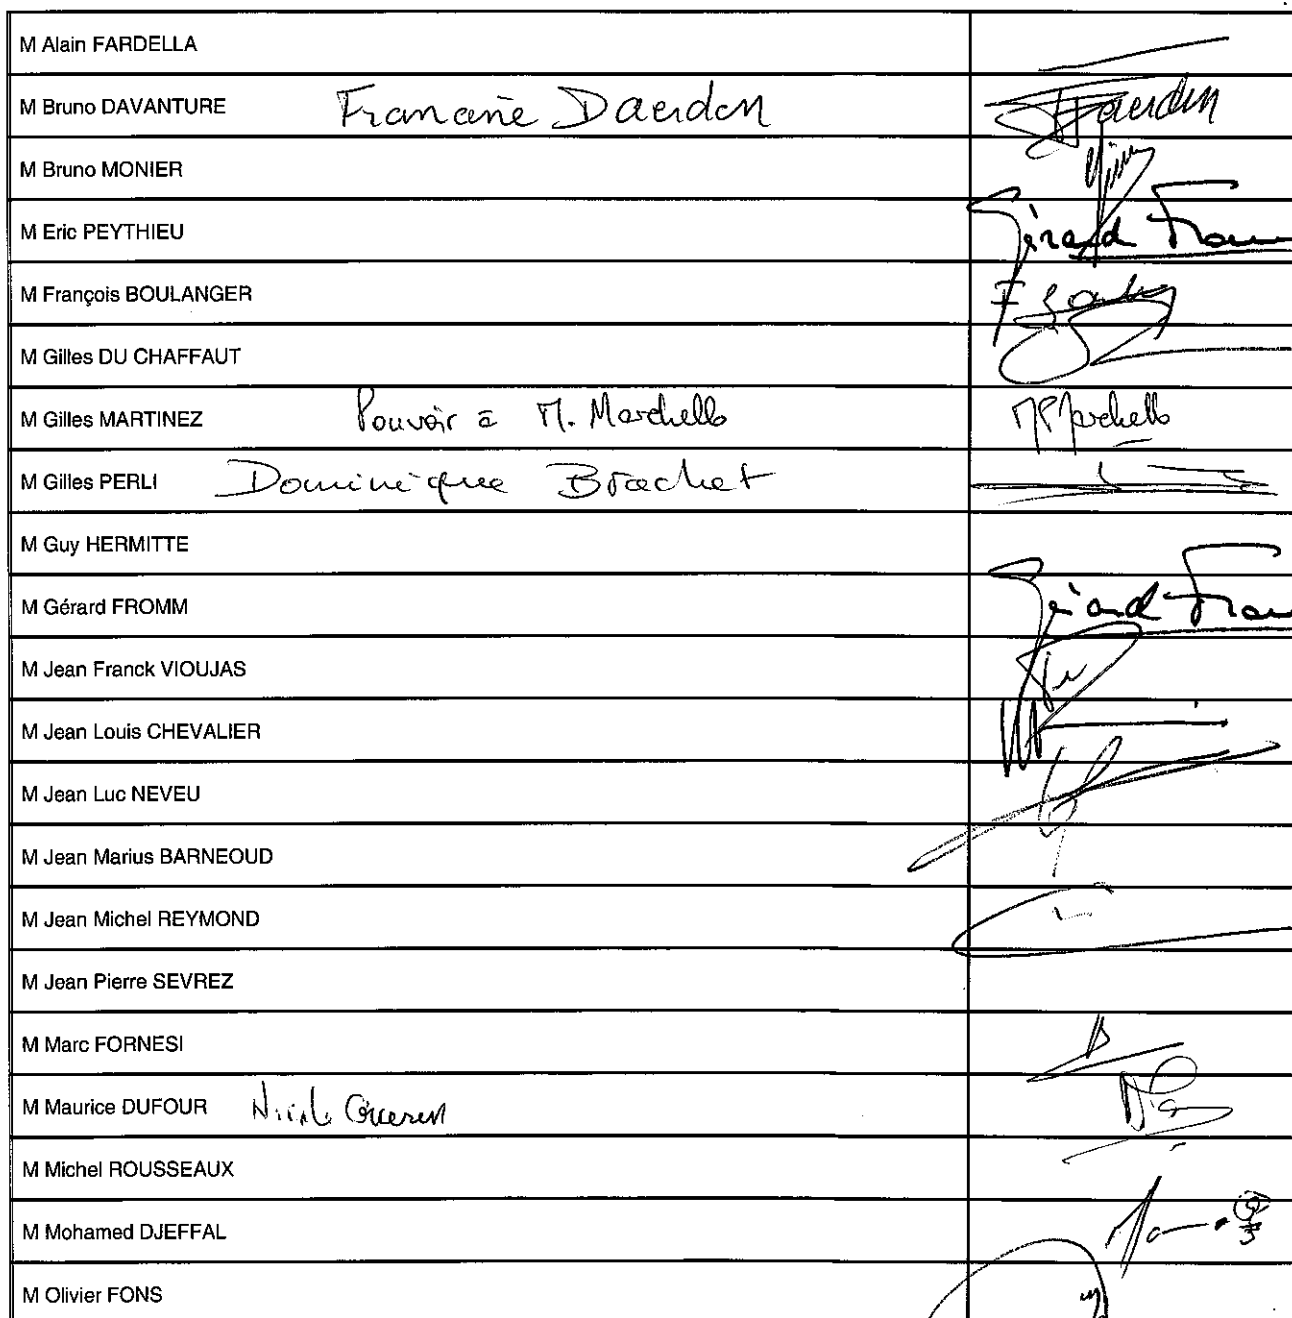 M Alain FARDELLA
M Bruno DAVANTURE Francine Daerden Daerden
M Bruno MONIER
M Eric PEYTHIEU Gérard Fromm
M François BOULANGER
M Gilles DU CHAFFAUT
M Gilles MARTINEZ Pouvoir à M. Marchello MPMarchello
M Gilles PERLI Dominique Brachet
M Guy HERMITTE
M Gérard FROMM Gérard Fromm
M Jean Franck VIOUJAS
M Jean Louis CHEVALIER
M Jean Luc NEVEU
M Jean Marius BARNEOUD
M Jean Michel REYMOND
M Jean Pierre SEVREZ
M Marc FORNESI
M Maurice DUFOUR Nicole Guerin
M Michel ROUSSEAUX
M Mohamed DJEFFAL
M Olivier FONS